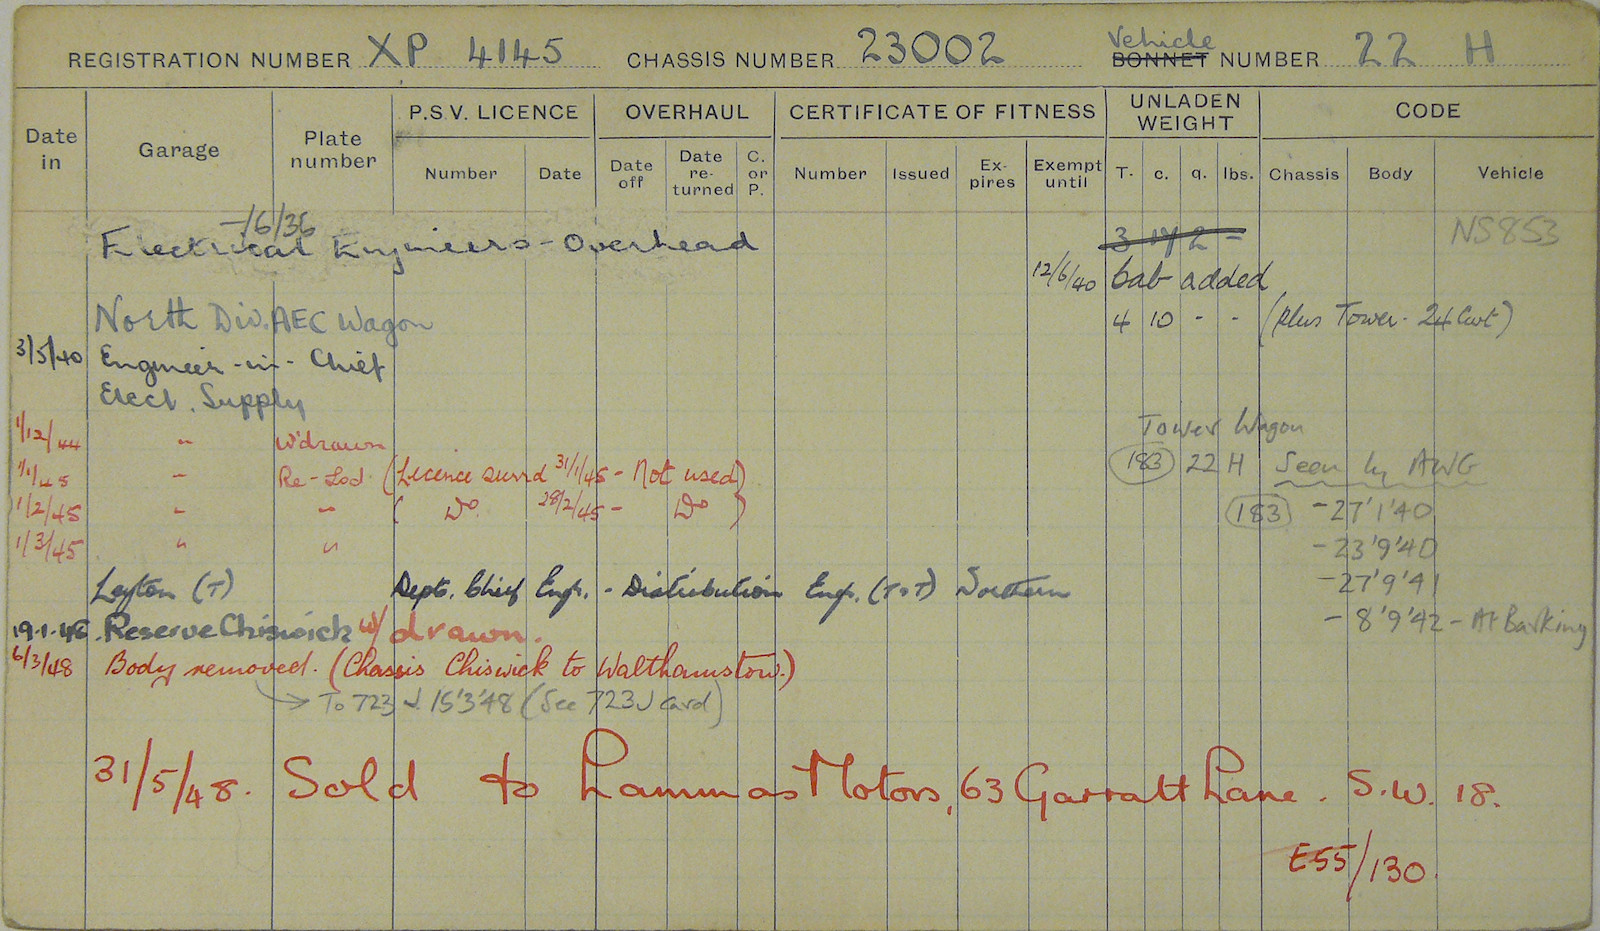 REGISTRATION NUMBER XP 4145 CHASSIS NUMBER 23002 Vehicle BONNET NUMBER 22 H
Date in Garage Plate number P.S.V. LICENCE Number Date OVERHAUL Date off Date re-turned C. or P. CERTIFICATE OF FITNESS Number Issued Ex-pires Exempt until UNLADEN WEIGHT T. c. q. lbs. CODE Chassis Body Vehicle
-/6/36
Electrical Engineers - Overhead 3 17 2 = NS853
12/6/40 Cab added
North Div. AEC Wagon 4 10 - - (plus Tower - 24 Cwt)
3/5/40 Engineer-in-Chief
Elect. Supply
1/12/44 " W'drawn Tower Wagon
1/1/45 " Re-Lsd (Licence surrd 31/1/45 - Not used) 183 22 H Seen by AWG
1/2/45 " " ( Do 28/2/45 - Do ) 183 -27'1'40
1/3/45 " " -23'9'40
Leyton (T) Dept. Chief Engr. - Distribution Engr. (T+T) Northern -27'9'41
19.1.46 Reserve Chiswick w/drawn. -8'9'42 - At Barking
6/3/48 Body removed. (Chassis Chiswick to Walthamstow.)
To 723 J 15'3'48 (See 723J card)
31/5/48. Sold to Lammas Motors, 63 Garratt Lane. S.W. 18.
E55/130.